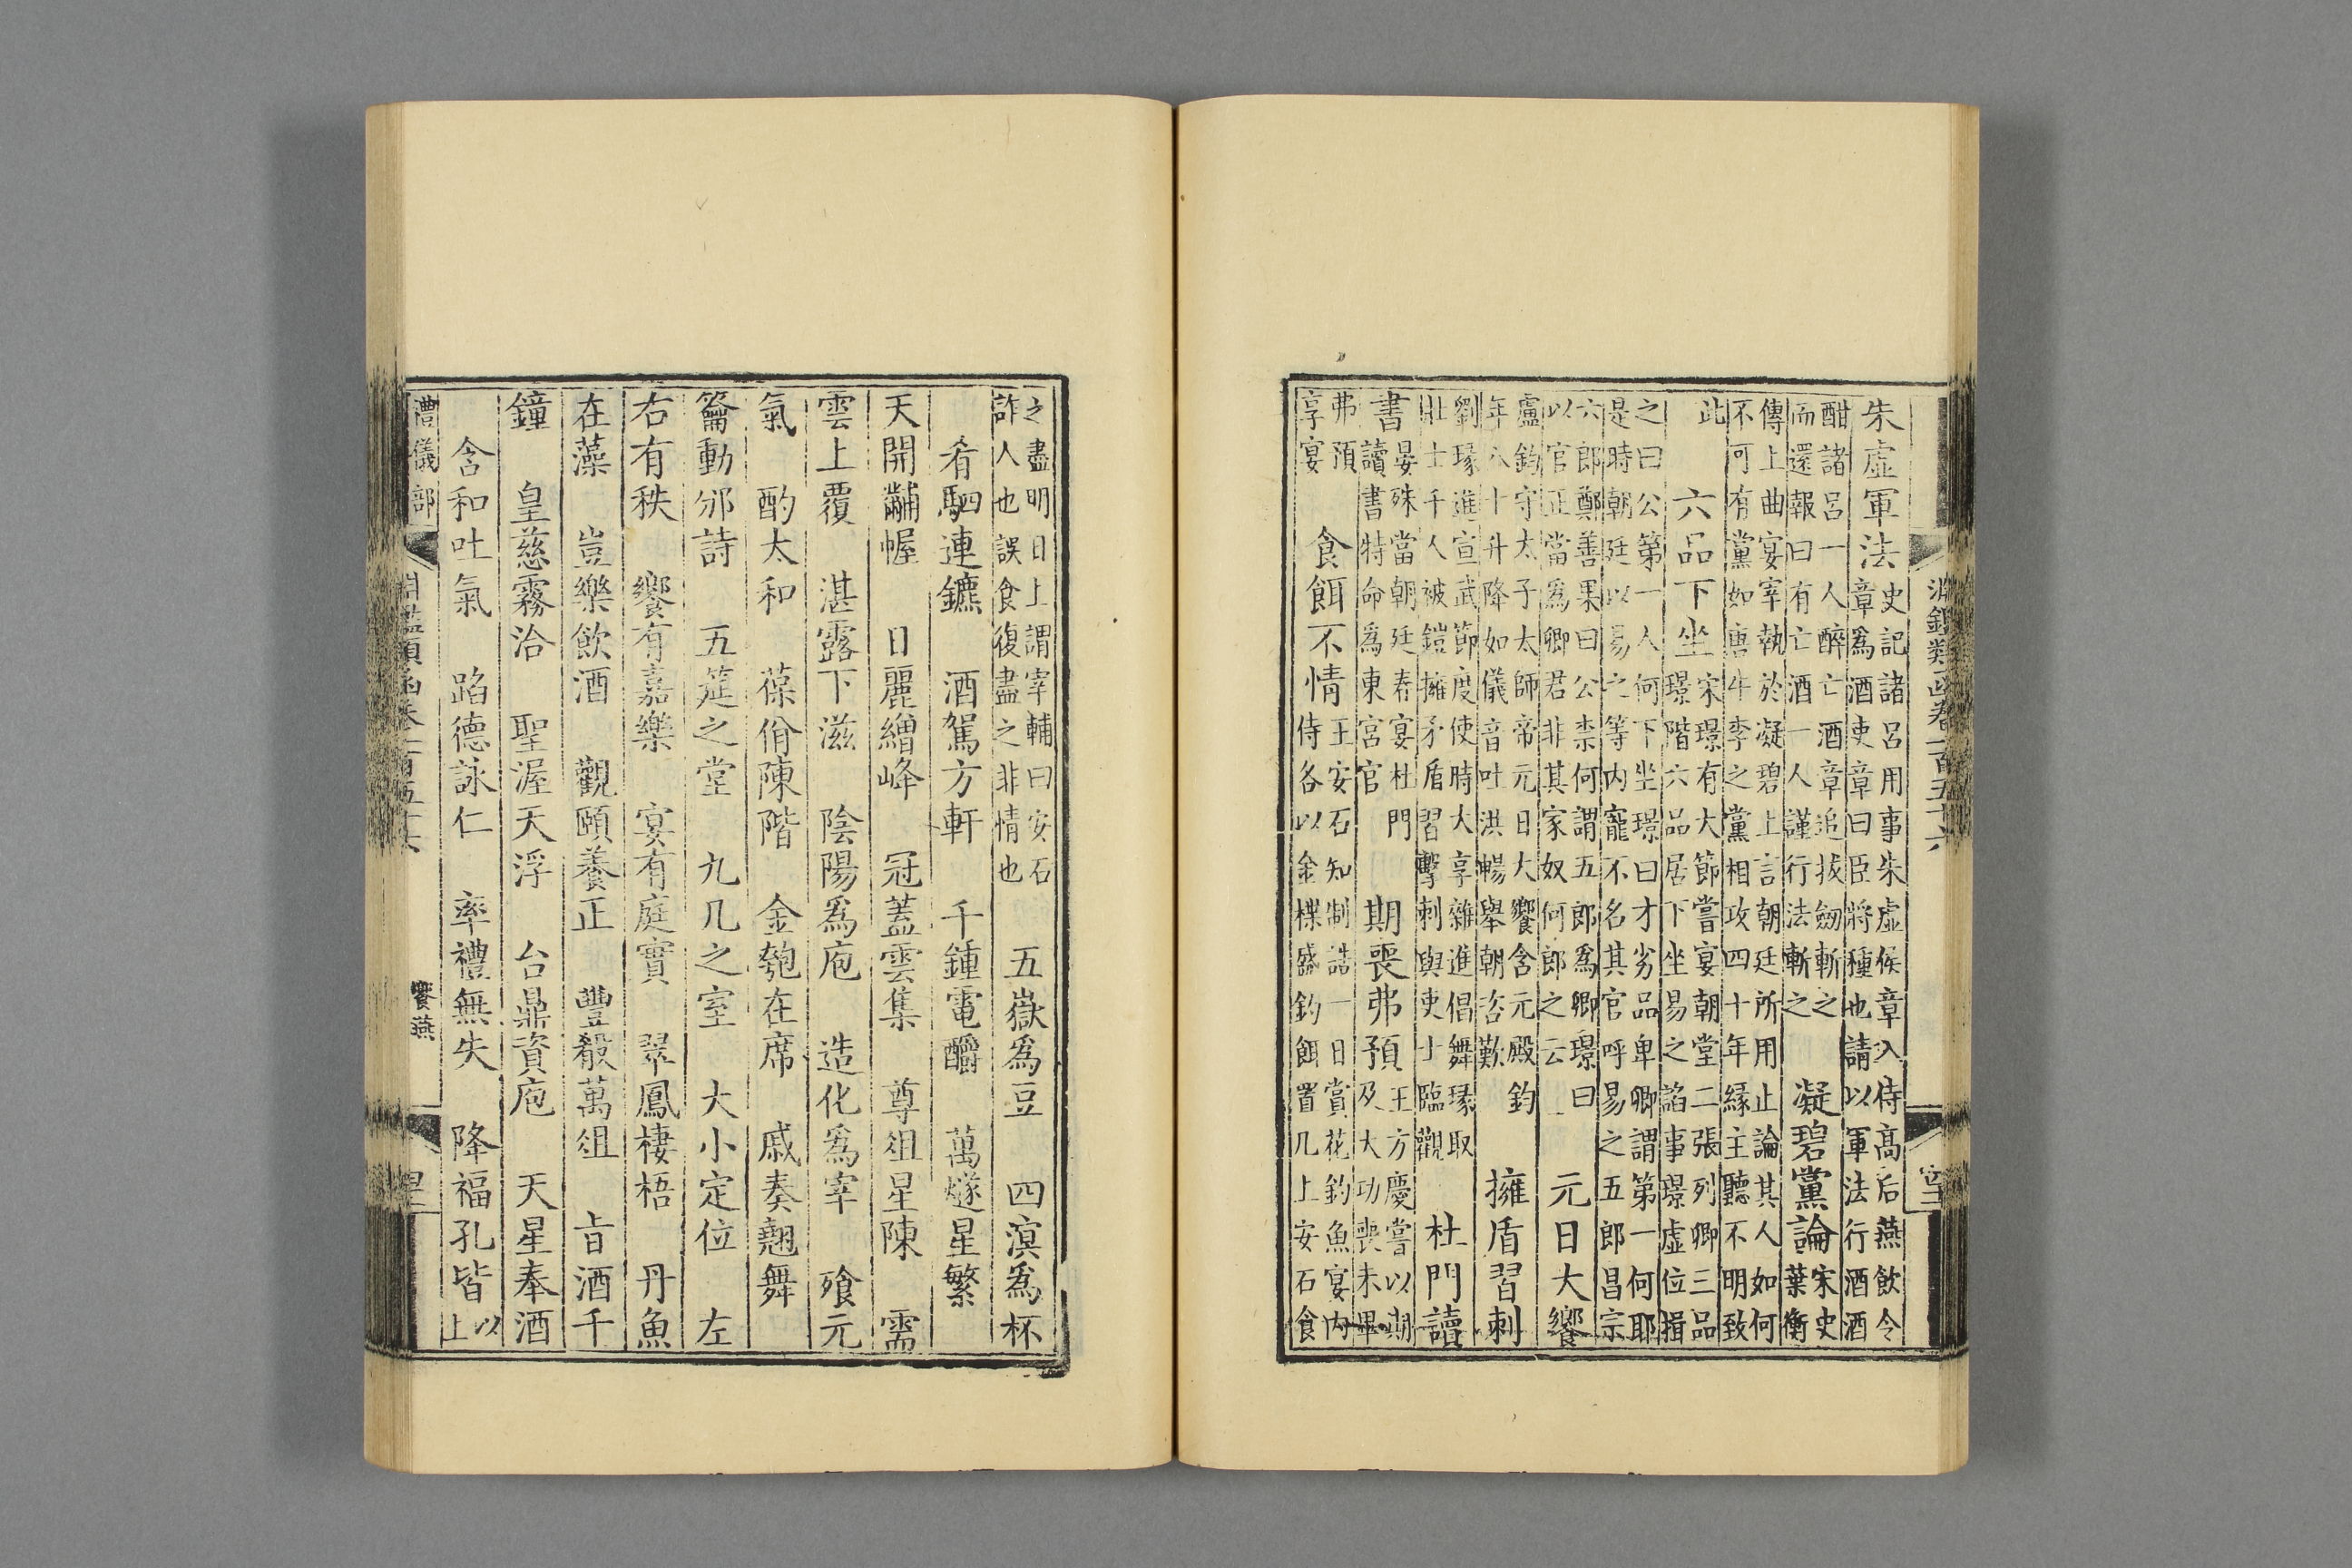 淵鑑類函卷一百五十六
朱虛軍法
史記諸呂用事朱虛侯章入侍高后燕飲令
章爲酒吏章曰臣將種也請以軍法行酒酒
酣諸呂一人醉亡酒章追拔劒斬之
而還報曰有亡酒一人謹行法斬之
凝碧黨論
宋史
葉衡
傳上曲宴宰執於凝碧上言朝廷所用止論其人如何
不可有黨如唐牛李之黨相攻四十年緣主聽不明致
此
六品下坐
宋璟有大節嘗宴朝堂二張列卿三品
璟階六品居下坐易之諂事璟虛位揖
之曰公第一人何下坐璟曰才劣品卑卿謂第一何耶
是時朝廷以易之等內寵不名其官呼易之五郎昌宗
六郎鄭善果曰公柰何謂五郎爲卿璟曰
以官正當爲卿君非其家奴何郎之云
元日大饗
盧鈞守太子太師帝元日大饗含元殿鈞
年八十升降如儀音吐洪暢舉朝咨歎
擁盾習刺
劉瑑進宣武節度使時大享雜進倡舞瑑取
壯士千人被鎧擁矛盾習擊刺與吏士臨觀
杜門讀
書
晏殊當朝廷春宴杜門
讀書特命爲東宮官
期喪弗預
王方慶嘗以期
及大功喪未畢
弗預
享宴
食餌不情
王安石知制誥一日賞花釣魚宴內
侍各以金楪盛釣餌置几上安石食
之盡明日上謂宰輔曰安石
詐人也誤食復盡之非情也
五嶽爲豆 四溟爲杯
肴駟連鑣 酒駕方軒 千鍾電釂 萬燧星繁
天開黼幄 日麗繒峰 冠蓋雲集 尊俎星陳 需
雲上覆 湛露下滋 陰陽爲庖 造化爲宰 飱元
氣 酌太和 葆佾陳階 金匏在席 戚奏翹舞
籥動邠詩 五筵之堂 九几之室 大小定位 左
右有秩 饗有嘉樂 宴有庭實 翠鳳棲梧 丹魚
在藻 豈樂飲酒 觀頤養正 豐殽萬俎 旨酒千
鐘 皇慈霧洽 聖渥天浮 台鼎資庖 天星奉酒
含和吐氣 蹈德詠仁 率禮無失 降福孔皆
以
上
禮儀部
淵鑑類函卷一百五十六
饗燕